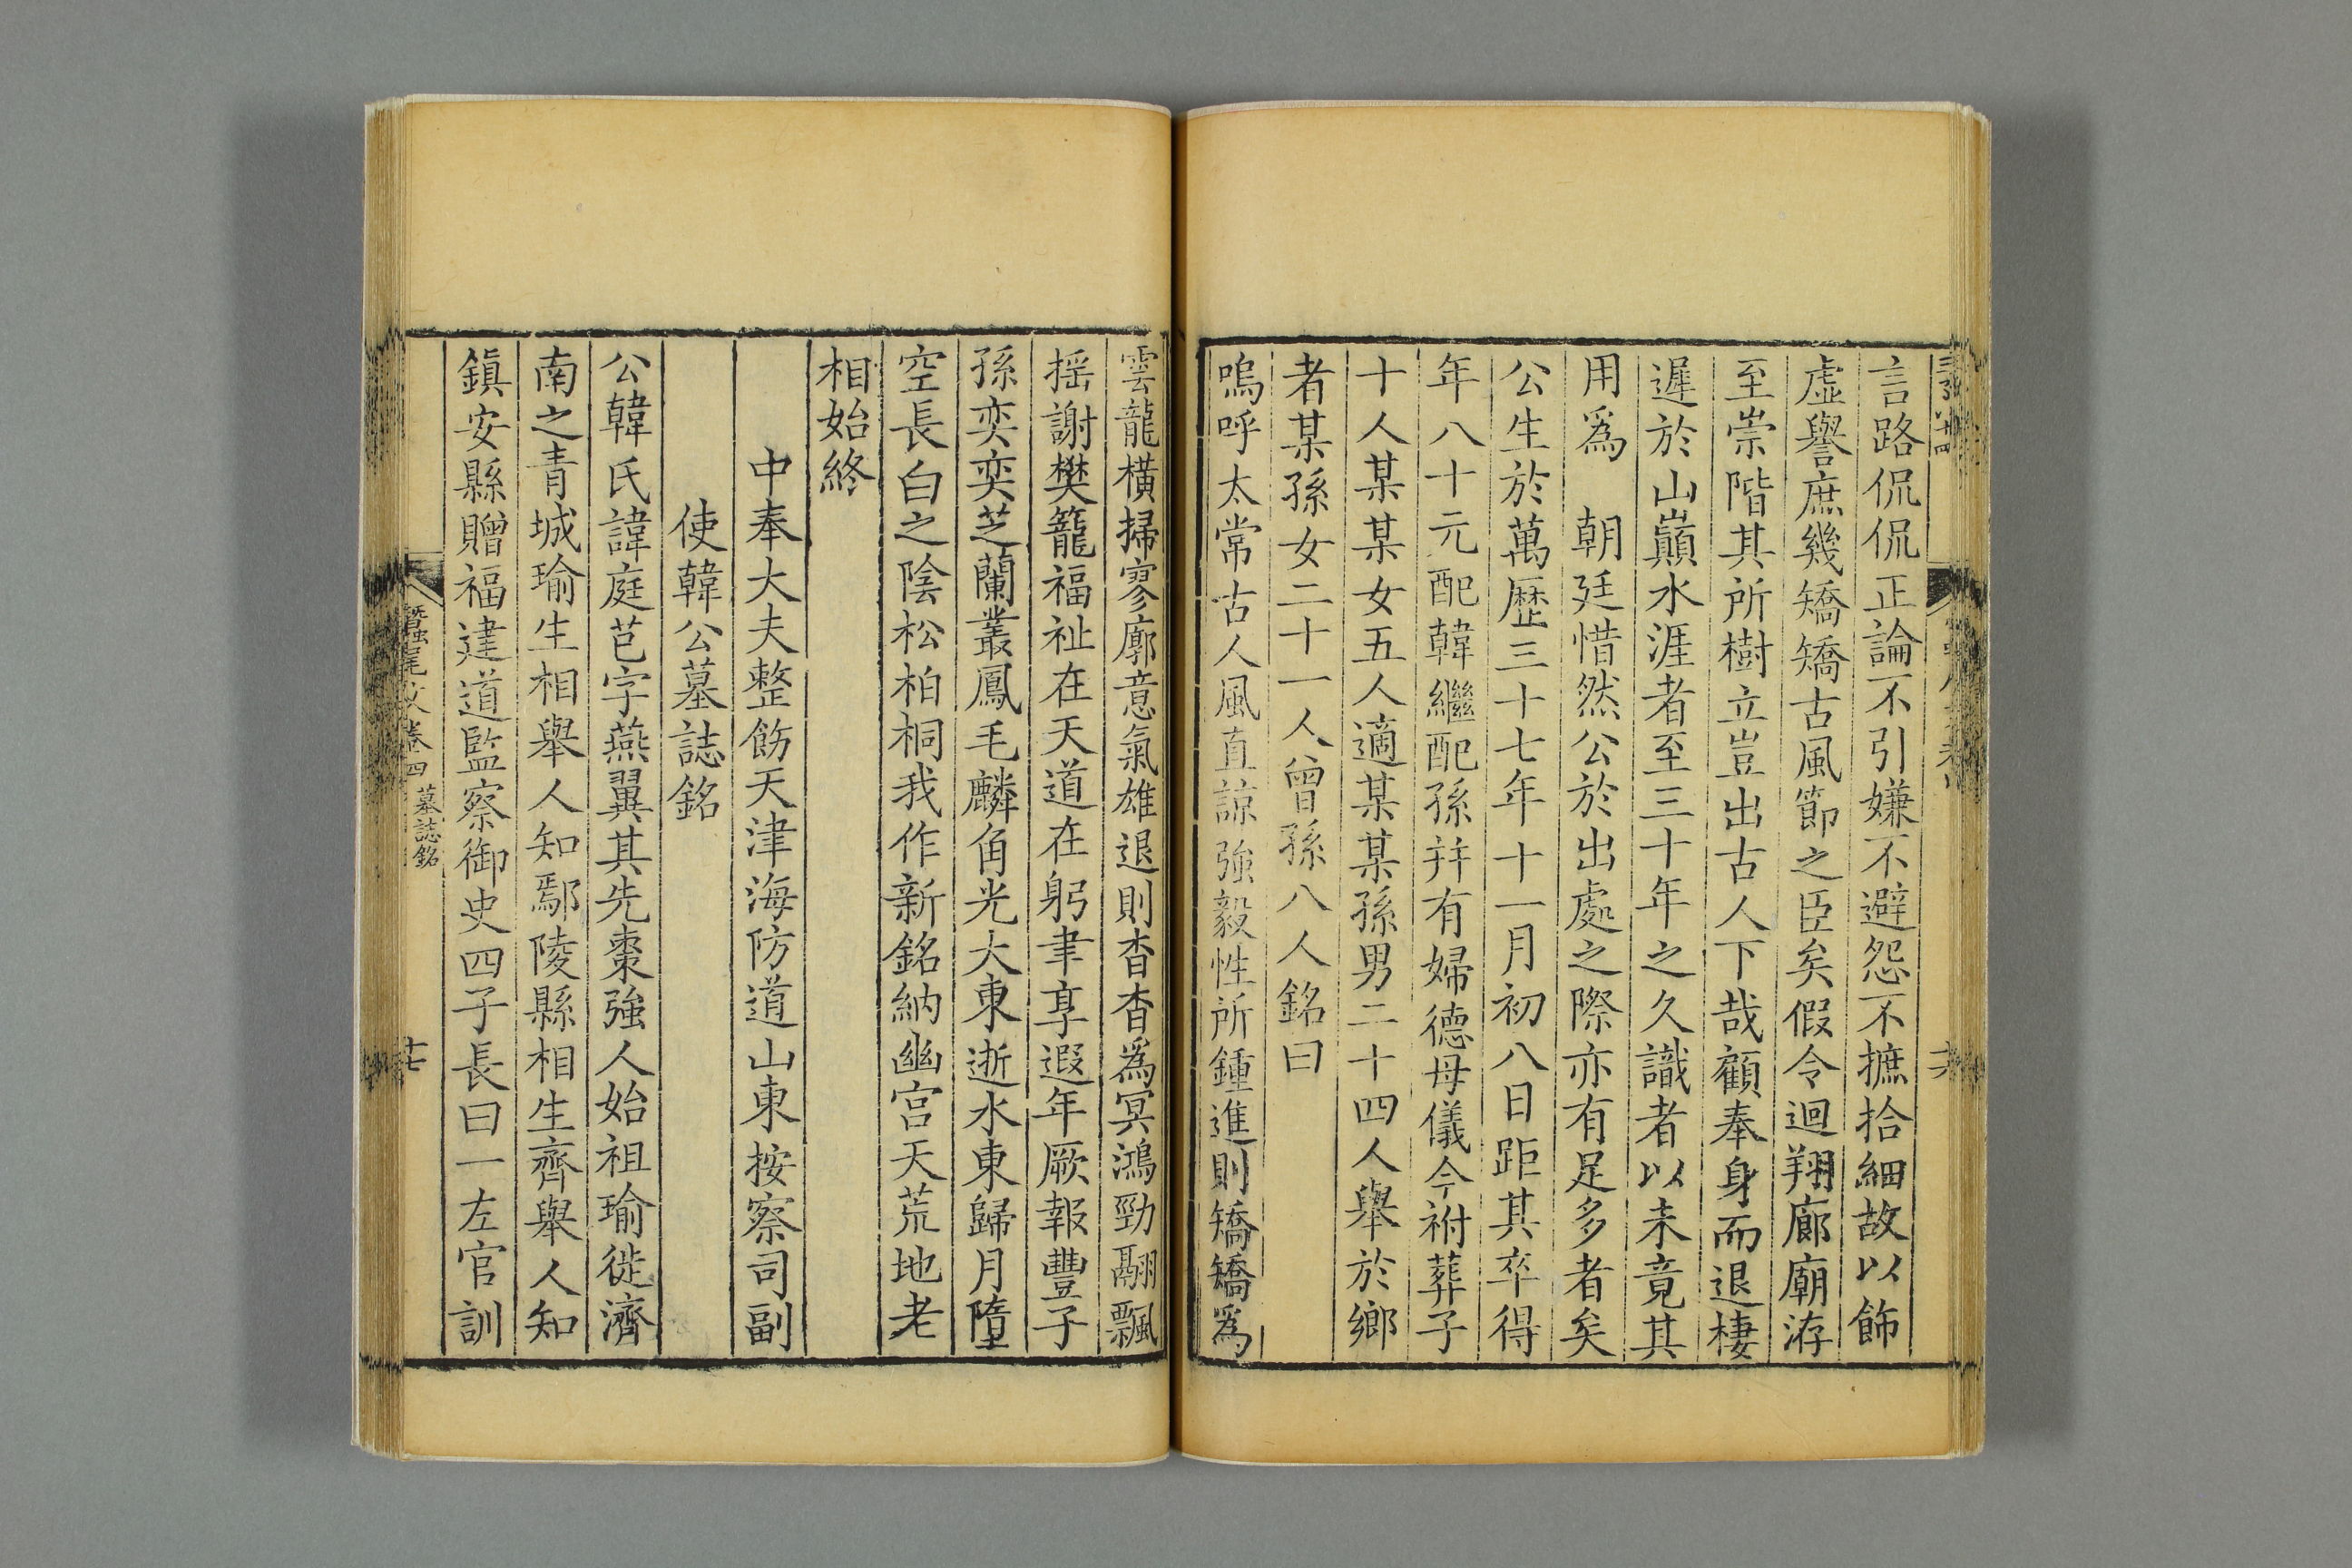 言路侃侃正論不引嫌不避怨不摭拾細故以飾
虛譽庶幾矯矯古風節之臣矣假令迴翔廊廟洊
至崇階其所樹立豈出古人下哉顧奉身而退棲
遲於山巔水涯者至三十年之久識者以未竟其
用爲　朝廷惜然公於出處之際亦有足多者矣
公生於萬歷三十七年十一月初八日距其卒得
年八十元配韓繼配孫幷有婦德母儀今祔葬子
十人某某女五人適某某孫男二十四人舉於鄉
者某孫女二十一人曾孫八人銘曰
嗚呼太常古人風直諒強毅性所鍾進則矯矯爲
雲龍橫掃寥廓意氣雄退則杳杳爲冥鴻勁翮飄
搖謝樊籠福祉在天道在躬聿享遐年厥報豐子
孫奕奕芝蘭叢鳳毛麟角光大東逝水東歸月墮
空長白之陰松柏桐我作新銘納幽宮天荒地老
相始終
中奉大夫整飭天津海防道山東按察司副
使韓公墓誌銘
公韓氏諱庭芑字燕翼其先棗強人始祖瑜徙濟
南之青城瑜生相舉人知鄢陵縣相生齊舉人知
鎮安縣贈福建道監察御史四子長曰一左官訓
蠶尾文卷四　墓誌銘
十七